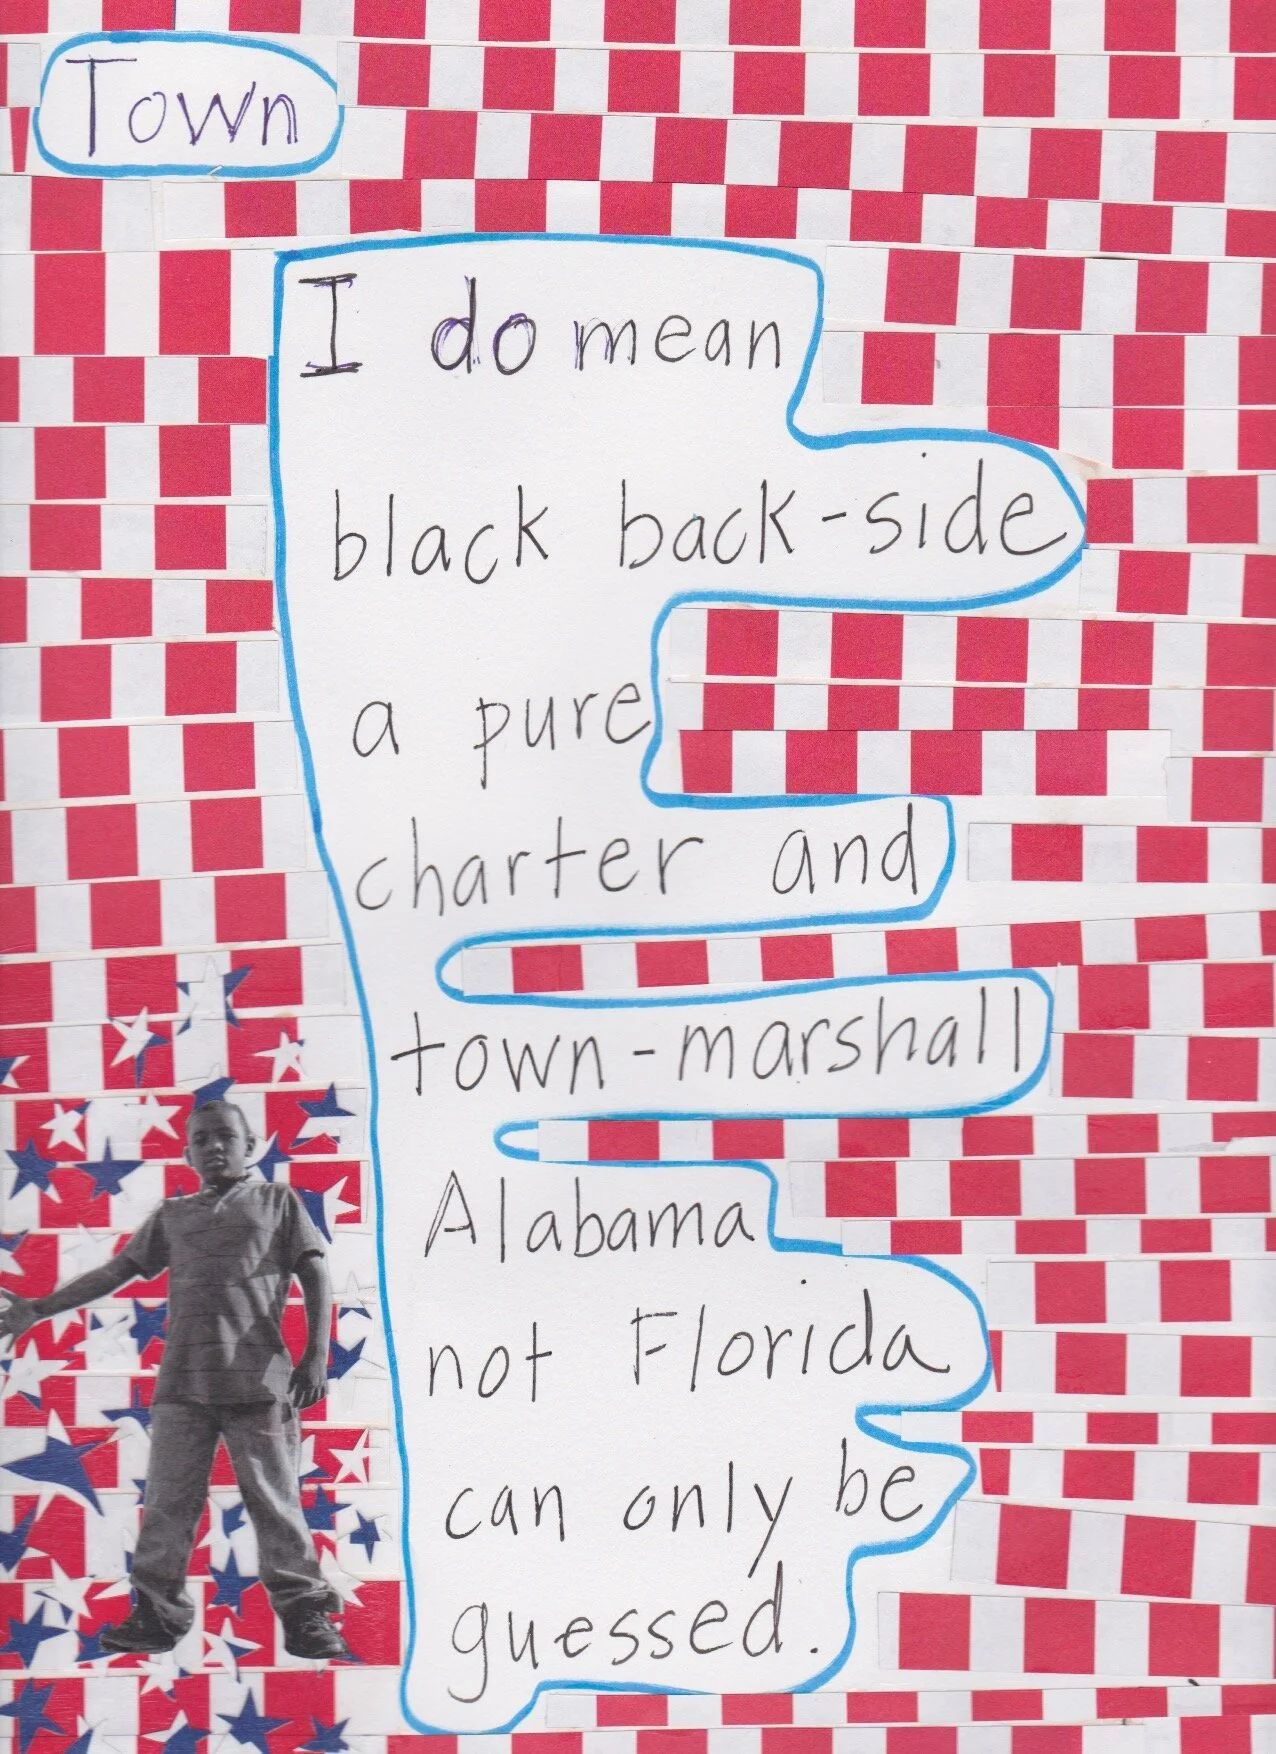 Town
I do mean
black back-side
a pure
charter and
town-marshall
Alabama
not Florida
can only be
guessed.